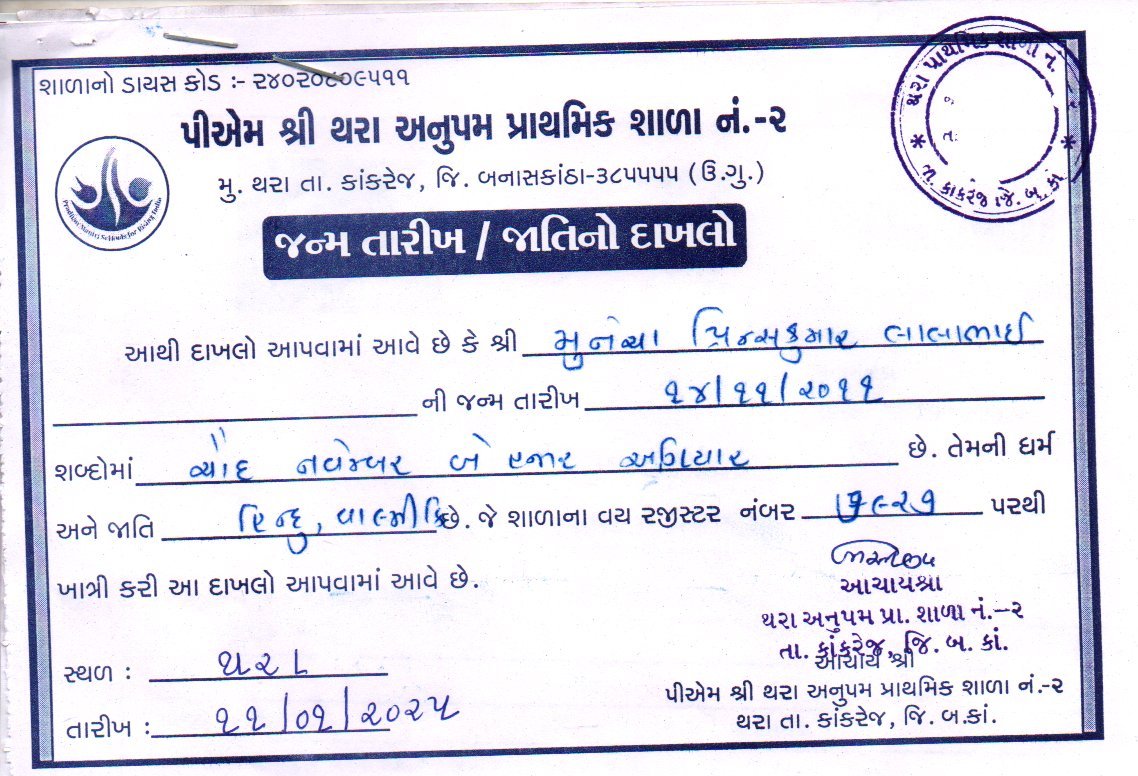 શાળાનો ડાયસ કોડ :- ૨૪૦૨૦૮૦૯૫૧૧
પીએમ શ્રી થરા અનુપમ પ્રાથમિક શાળા નં.-૨
મુ. થરા તા. કાંકરેજ, જિ. બનાસકાંઠા-૩૮૫૫૫૫ (ઉ.ગુ.)
Pradhan Mantri Schools for Rising India
થરા પ્રાથમિક શાળા નં.
તા. કાંકરેજ જિ. બ. કાં.
જન્મ તારીખ / જાતિનો દાખલો
આથી દાખલો આપવામાં આવે છે કે શ્રી મુનેચા પ્રિન્સકુમાર લાલાભાઈ
ની જન્મ તારીખ ૧૪/૧૧/૨૦૧૧
શબ્દોમાં ચૌદ નવેમ્બર બે હજાર અગિયાર છે. તેમની ધર્મ
અને જાતિ હિન્દુ, વાલ્મીકિ છે. જે શાળાના વય રજીસ્ટર નંબર પરથી
ખાત્રી કરી આ દાખલો આપવામાં આવે છે.
આચાર્યશ્રી
થરા અનુપમ પ્રા. શાળા નં.-૨
તા. કાંકરેજ, જિ. બ. કાં.
સ્થળ : થરા
આચાર્ય શ્રી
પીએમ શ્રી થરા અનુપમ પ્રાથમિક શાળા નં.-૨
તારીખ : ૧૧/૦૧/૨૦૨૫
થરા તા. કાંકરેજ, જિ. બ.કાં.